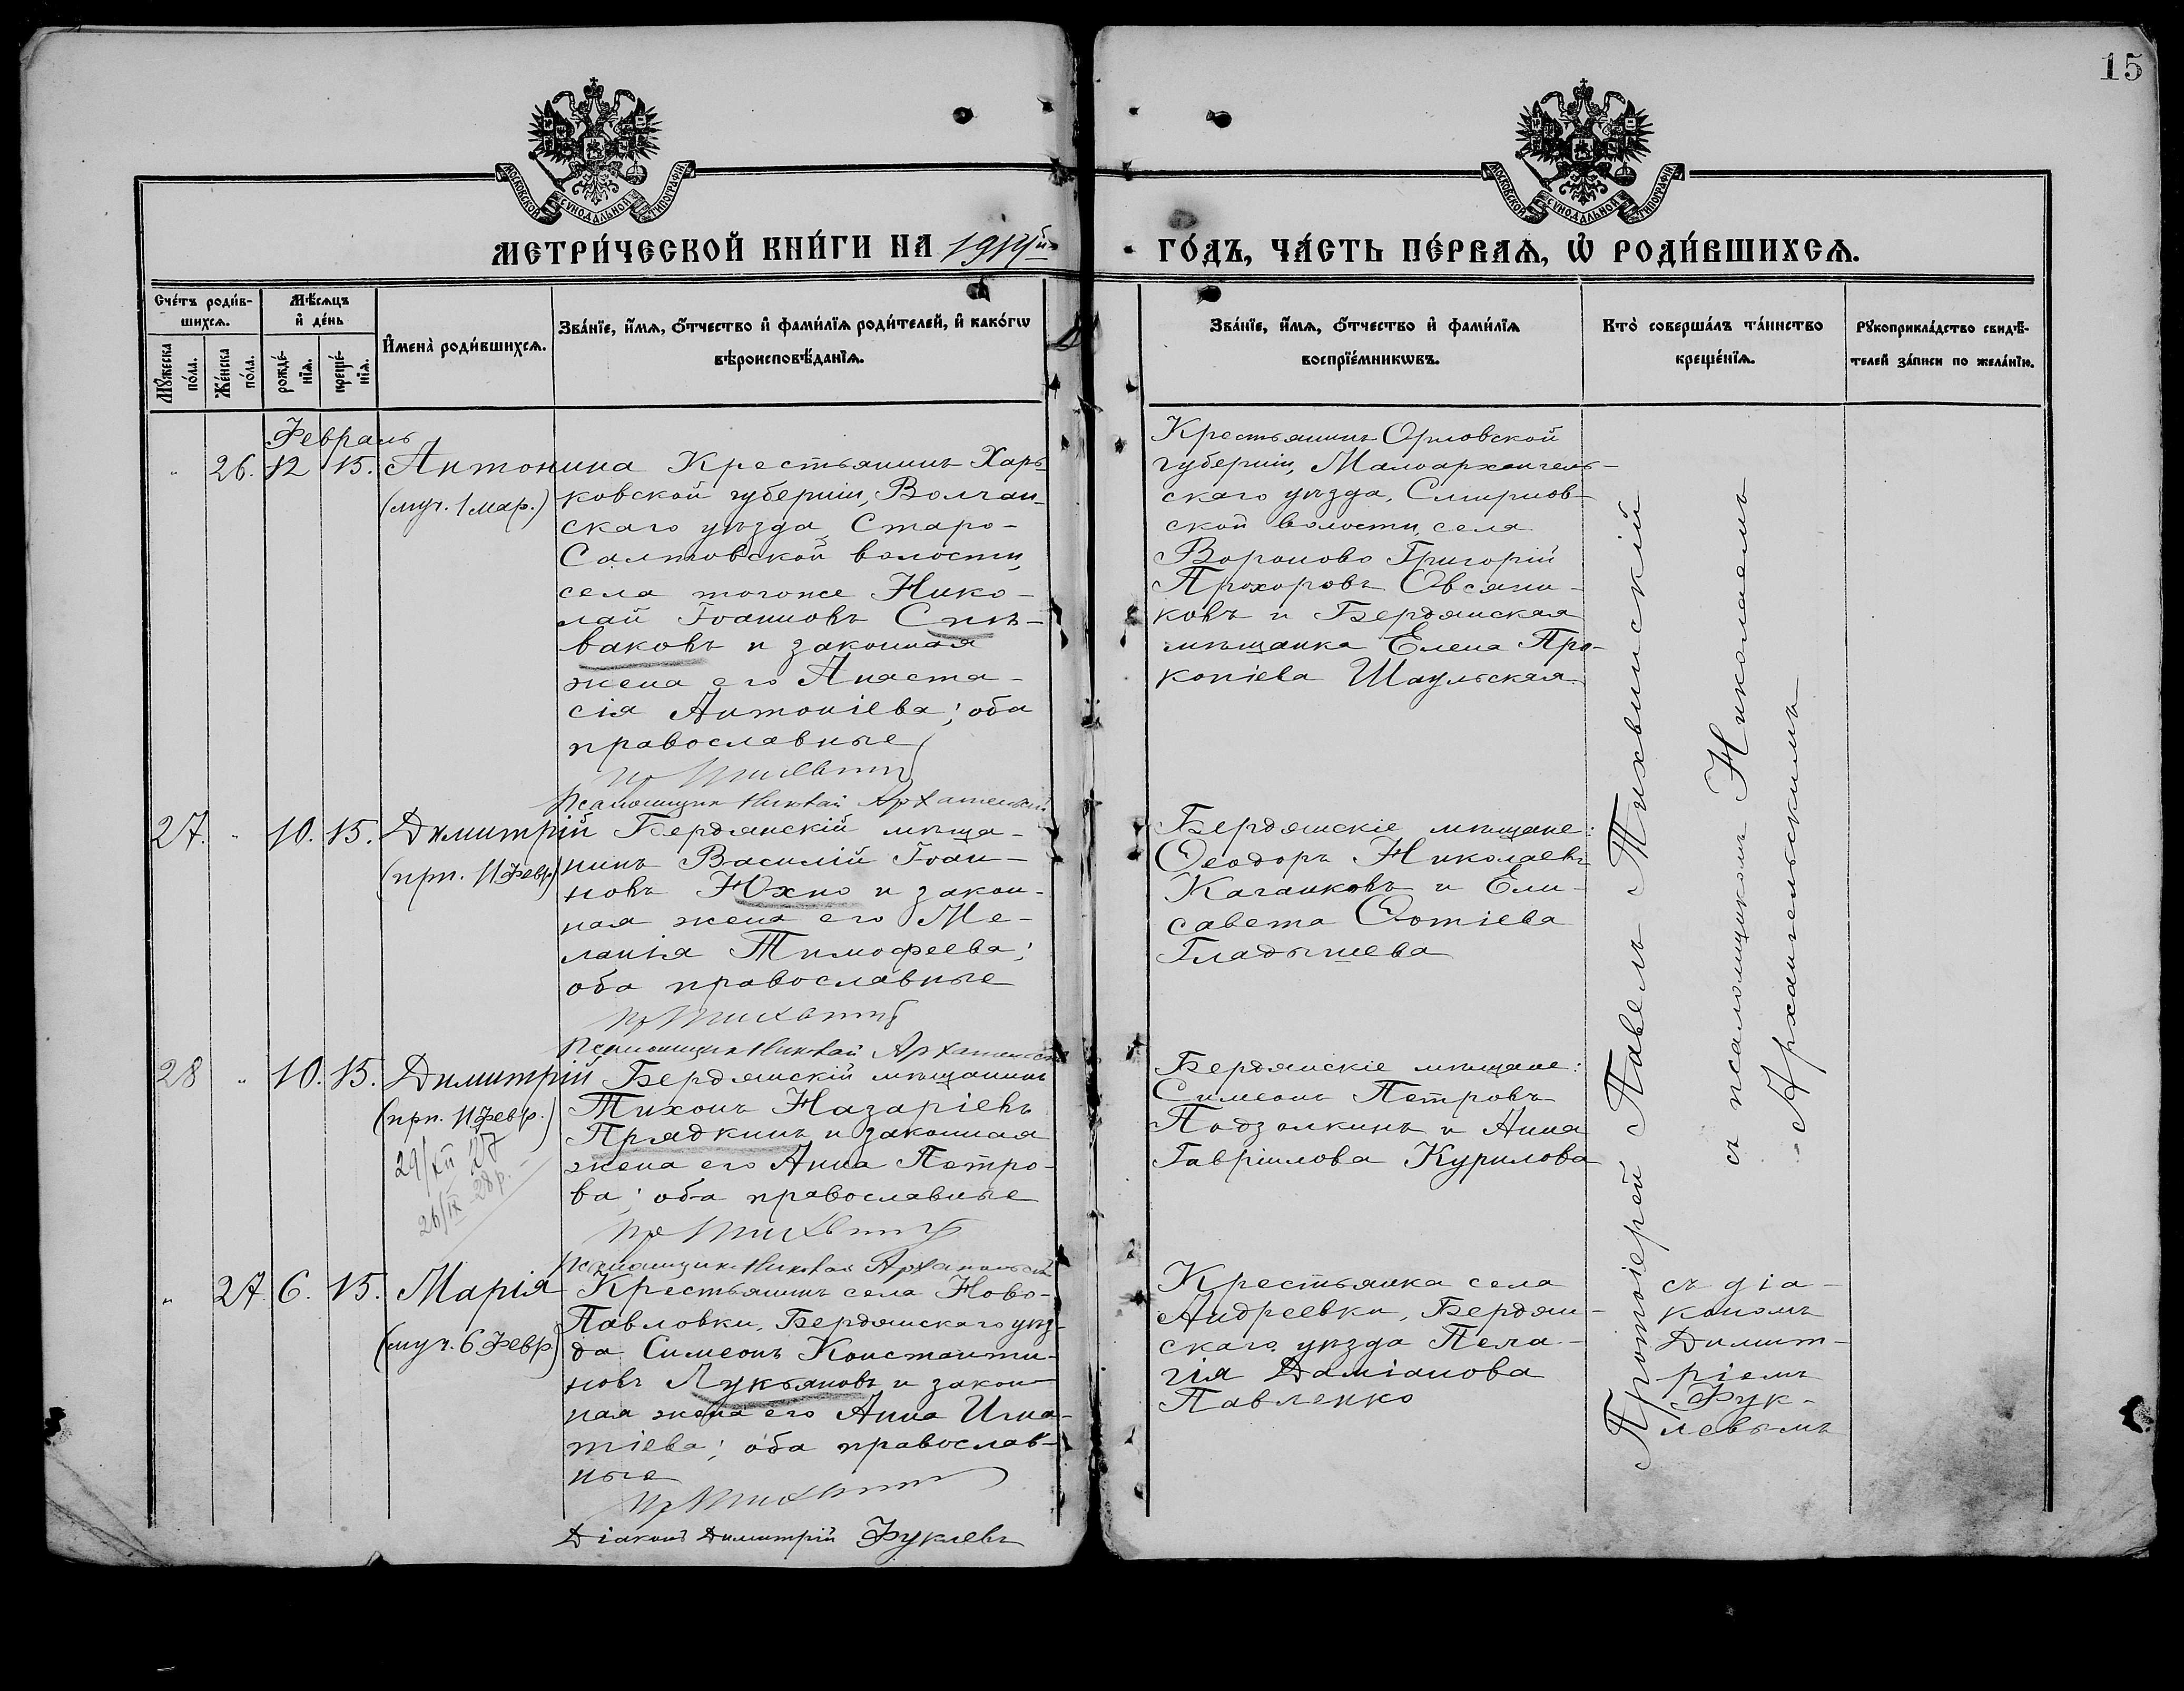 15
МОСКОВСКОЙ СУНОДАЛЬНОЙ ТИПОГРАФІИ
МОСКОВСКОЙ СУНОДАЛЬНОЙ ТИПОГРАФІИ
МЕТРИ́ЧЕСКОЙ КНИ́ГИ НА
ГО́ДЪ, ЧА́СТЬ ПЕ́РВАѦ, Ѡ҆ РОДИ́ВШИХСѦ.
Сче́тъ роди́в-
шихсѧ.
Мꙋ́жеска по́ла.
Же́нска по́ла.
Мѣ́сѧцъ
и҆ де́нь
рожде́-
нїѧ.
креще́-
нїѧ.
И҆мена̀ роди́вшихсѧ.
Зва́нїе, и҆́мѧ, ѻ҆́тчество и҆ фами́лїѧ роди́телей, и҆ како́гѡ
вѣроисповѣ́данїѧ.
Зва́нїе, и҆́мѧ, ѻ҆́тчество и҆ фами́лїѧ
воспрїе́мникѡвъ.
Кто̀ соверша́лъ та́инство
креще́нїѧ.
Рꙋкоприкла́дство свидѣ́-
телей за́писи по жела́нїю.
Февраль
" 26. 12 15. Антонина
(муч. 1 мар.)
Крестьянинъ Харь-
ковской губерніи, Волчан-
скаго уѣзда, Старо-
Салтовской волости,
села тогоже Нико-
лай Іоанновъ Спѣ-
ваковъ и законная
жена его Анаста-
сія Антоніева; оба
православные
Псаломщикъ Николай Архангельскій
Крестьянинъ Орловской
губерніи, Малоархангель-
скаго уѣзда, Смирнов-
ской волости, села
Вороново Григорій
Прохоровъ Овсяни-
ковъ и Бердянская
мѣщанка Елена Про-
копіева Шаульская.
27. " 10. 15. Димитрій
(прп. 11 Февр)
Бердянскій мѣща-
нинъ Василій Іоан-
новъ Юхно и закон-
ная жена его Ме-
ланія Тимофеева;
оба православные
Псаломщикъ Николай Архангельскій
Бердянскіе мѣщане:
Ѳеодоръ Николаевъ
Каганковъ и Ели-
савета Ѳотіева
Гладышева
28 " 10. 15. Димитрій
(прп. 11 Февр.)
29/XII 27
26/IX 28 р.
Бердянскій мѣщанинъ
Тихонъ Назаріевъ
Прядкинъ и законная
жена его Анна Петро-
ва; оба православные
Псаломщикъ Николай Архангельскій
Бердянскіе мѣщане:
Симеонъ Петровъ
Подзолкинъ и Анна
Гавріилова Курилова
" 27 6. 15. Марія
(муч. 6 Февр)
Крестьянинъ села Ново-
Павловки, Бердянскаго уѣз-
да Симеонъ Константи-
новъ Лукьяновъ и закон-
ная жена его Анна Игна-
тіева; оба православ-
ные
Діаконъ Димитрій Фуклевъ
Крестьянка села
Андреевки, Бердян-
скаго уѣзда Пела-
гія Даміанова
Павленко
Протоіерей Павелъ Тихвинскій
съ псаломщикомъ Николаемъ
Архангельскимъ
съ діа-
кономъ
Димит-
ріемъ
Фук-
левымъ